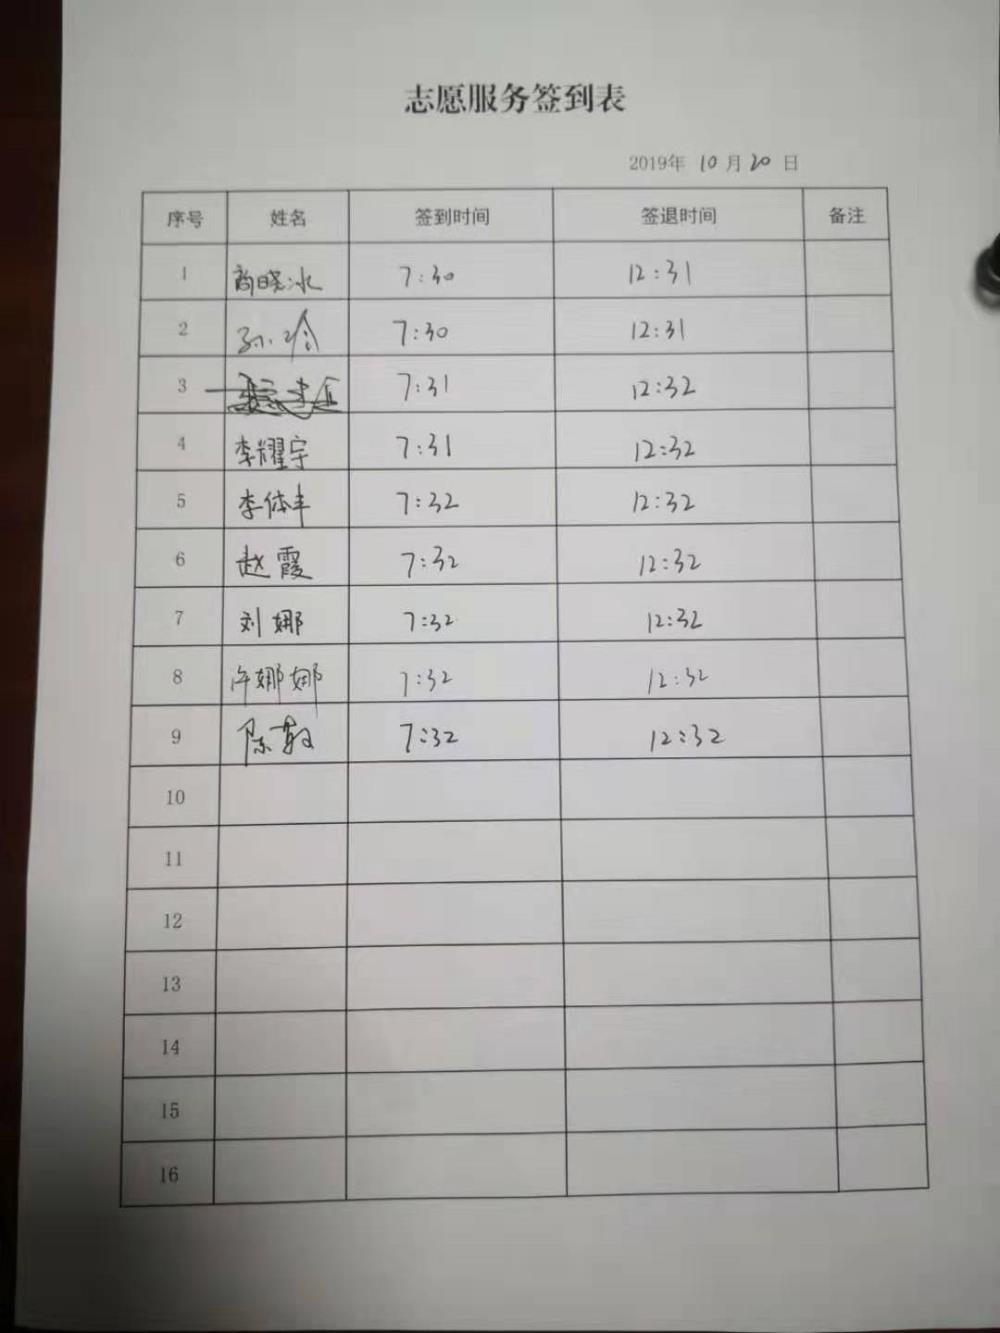 志愿服务签到表
2019年 10 月 20 日
序号 姓名 签到时间 签退时间 备注
1 商晓冰 7:30 12:31
2 孙玲 7:30 12:31
3 7:31 12:32
4 李耀宇 7:31 12:32
5 李体丰 7:32 12:32
6 赵霞 7:32 12:32
7 刘娜 7:32 12:32
8 许娜娜 7:32 12:32
9 陈敏 7:32 12:32
10
11
12
13
14
15
16